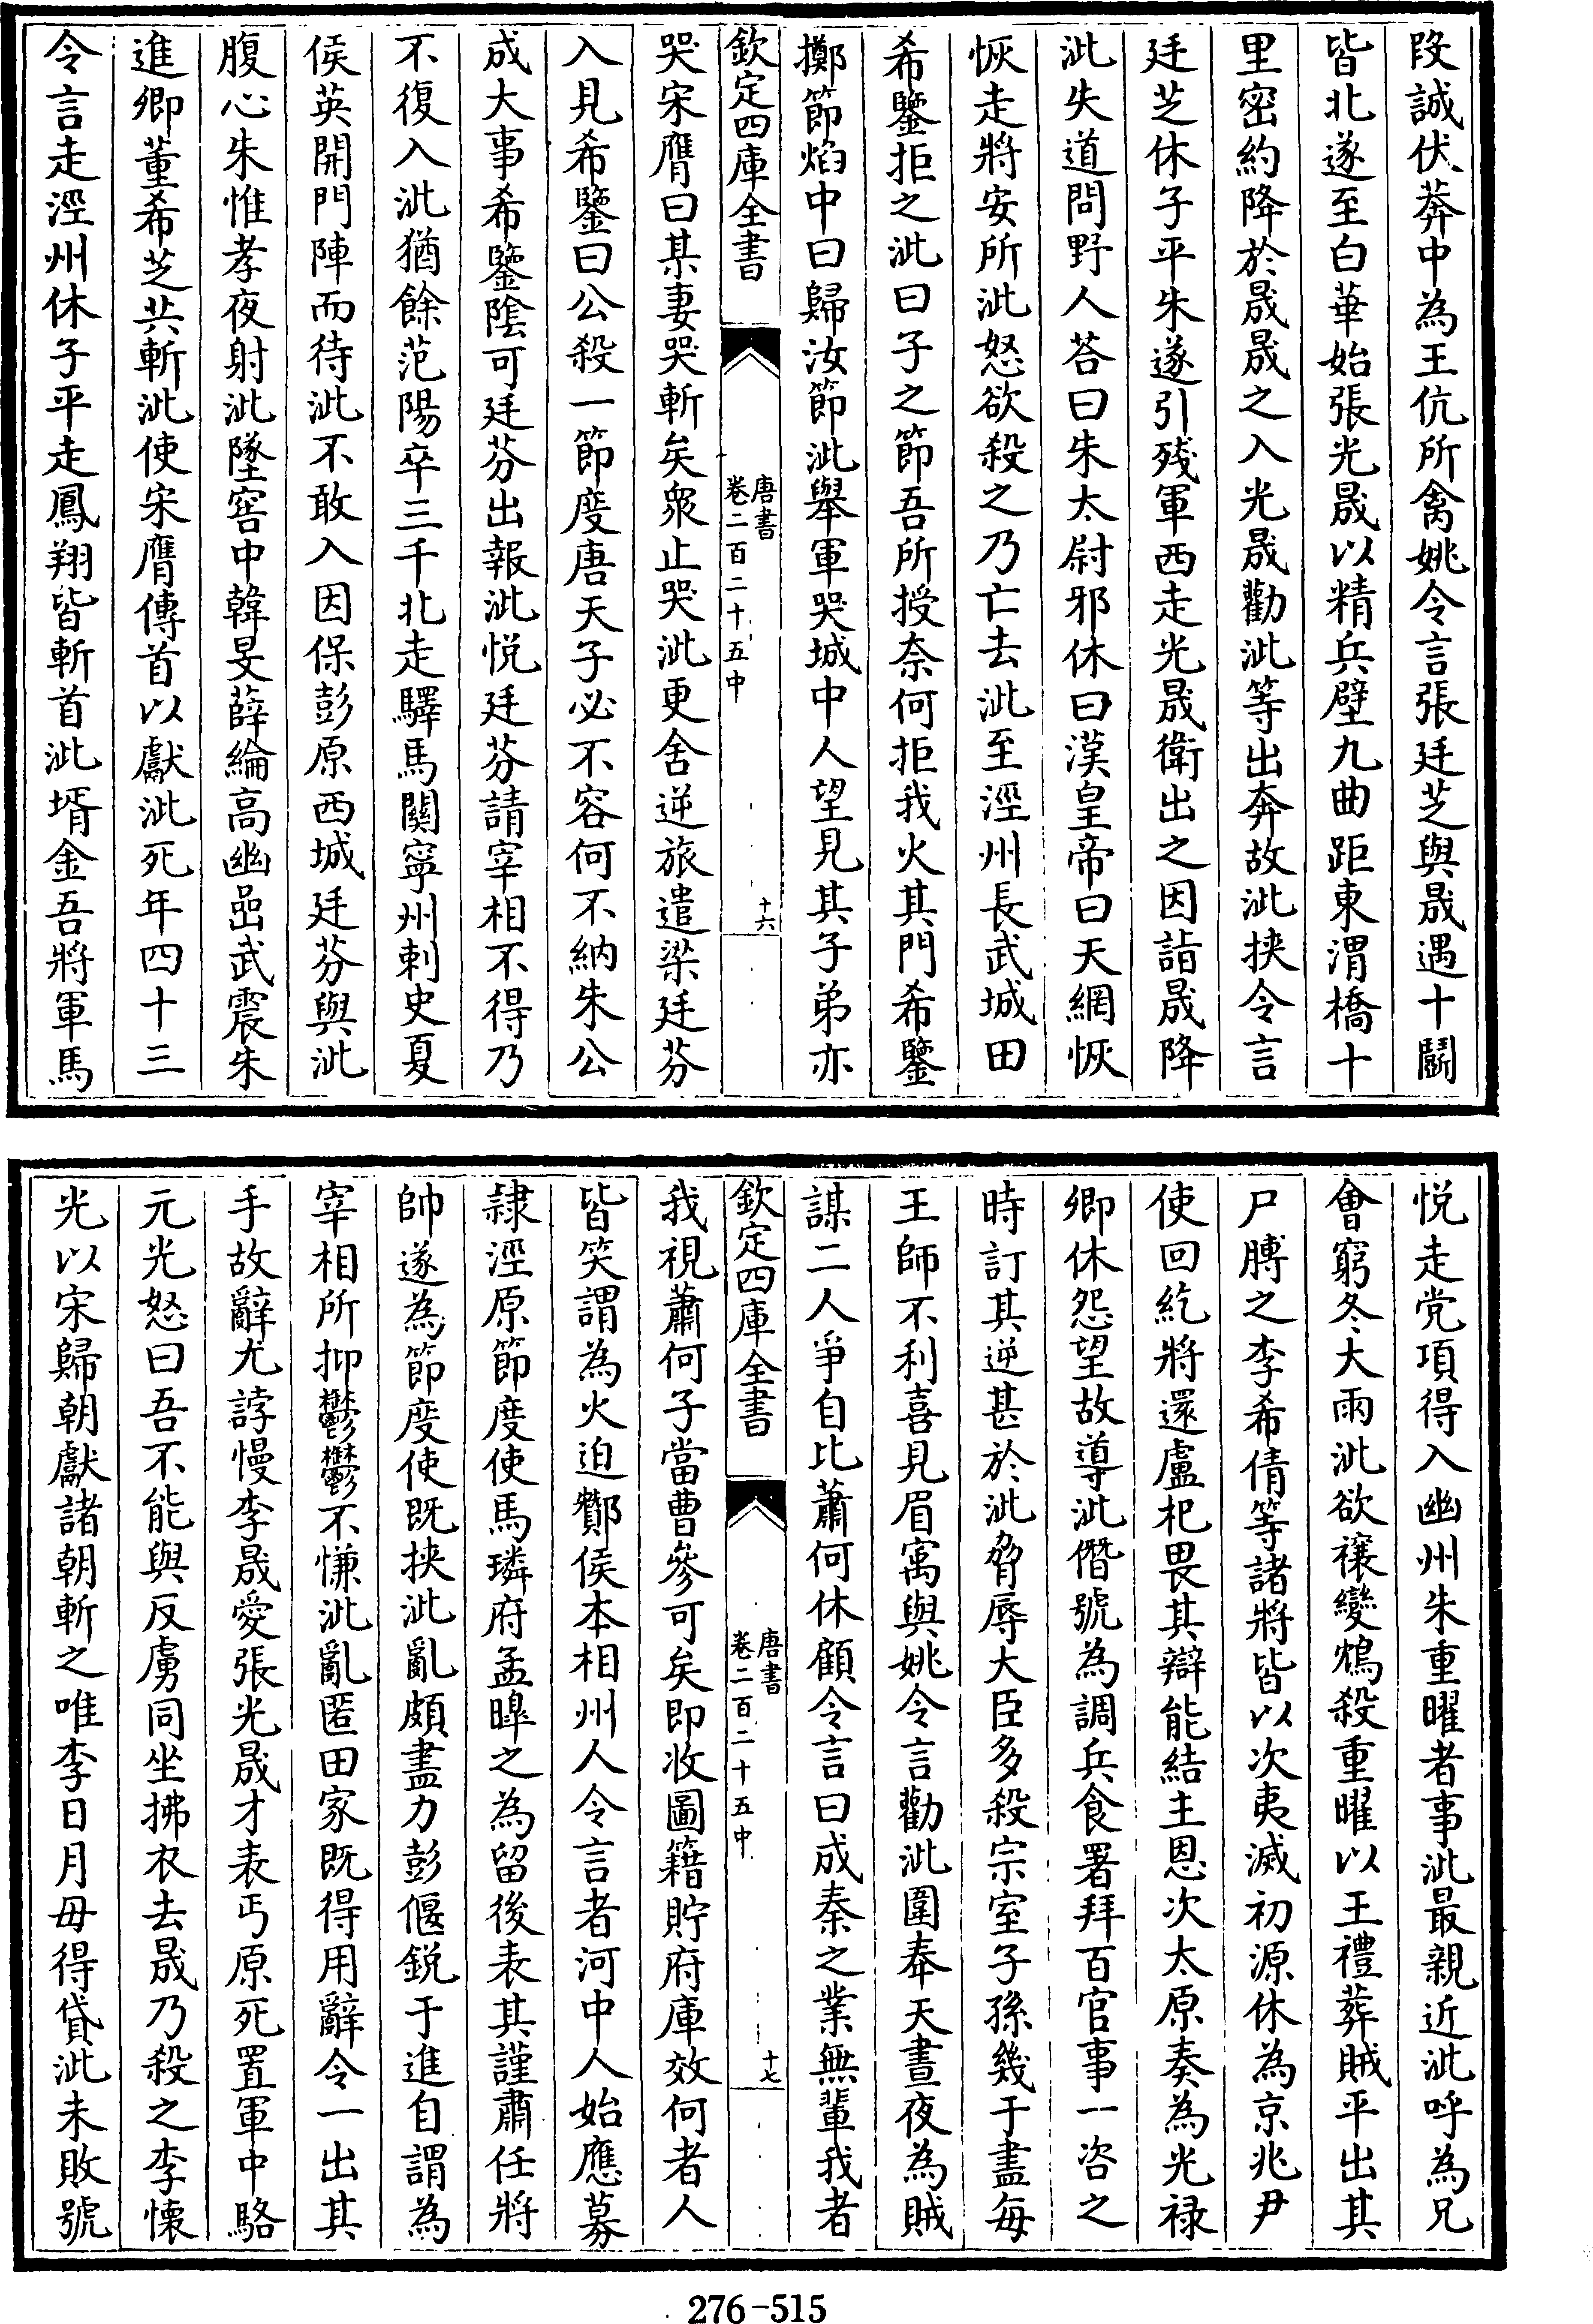 段誠伏莽中為王伉所禽姚令言張廷芝與晟遇十鬭
皆北遂至白華始張光晟以精兵壁九曲距東渭橋十
里密約降於晟晟之入光晟勸泚等出奔故泚挾令言
廷芝休子平朱遂引殘軍西走光晟衛出之因詣晟降
泚失道問野人荅曰朱太尉邪休曰漢皇帝曰天網恢
恢走將安所泚怒欲殺之乃亡去泚至涇州長武城田
希鑒拒之泚曰子之節吾所授奈何拒我火其門希鑒
擲節焰中曰歸汝節泚舉軍哭城中人望見其子弟亦
欽定四庫全書
唐書
卷二百二十五中
十六
哭宋膺曰某妻哭斬矣衆止哭泚更舍逆旅遣梁廷芬
入見希鑒曰公殺一節度唐天子必不容何不納朱公
成大事希鑒陰可廷芬出報泚悅廷芬請宰相不得乃
不復入泚猶餘范陽卒三千北走驛馬關寧州刺史夏
侯英開門陣而待泚不敢入因保彭原西城廷芬與泚
腹心朱惟孝夜射泚墜窖中韓旻薛綸高幽嵒武震朱
進卿董希芝共斬泚使宋膺傳首以獻泚死年四十三
令言走涇州休子平走鳳翔皆斬首泚壻金吾將軍馬
悅走党項得入幽州朱重曜者事泚最親近泚呼為兄
會窮冬大雨泚欲禳變鴆殺重曜以王禮葬賊平出其
尸膊之李希倩等諸將皆以次夷滅初源休為京兆尹
使回紇將還盧杞畏其辯能結主恩次太原奏為光祿
卿休怨望故導泚僭號為調兵食署拜百官事一咨之
時訂其逆甚於泚脅辱大臣多殺宗室子孫幾于盡每
王師不利喜見眉寓與姚令言勸泚圍奉天晝夜為賊
謀二人爭自比蕭何休顧令言曰成秦之業無輩我者
欽定四庫全書
唐書
卷二百二十五中
十七
我視蕭何子當曹參可矣即收圖籍貯府庫效何者人
皆笑謂為火迫酇侯本相州人令言者河中人始應募
隸涇原節度使馬璘府孟暤之為留後表其謹肅任將
帥遂為節度使既挾泚亂頗盡力彭偃銳于進自謂為
宰相所抑鬱鬱不慊泚亂匿田家既得用辭令一出其
手故辭尤誖慢李晟愛張光晟才表丐原死置軍中駱
元光怒曰吾不能與反虜同坐拂衣去晟乃殺之李懷
光以宋歸朝獻諸朝斬之唯李日月毋得貸泚未敗號
276-515